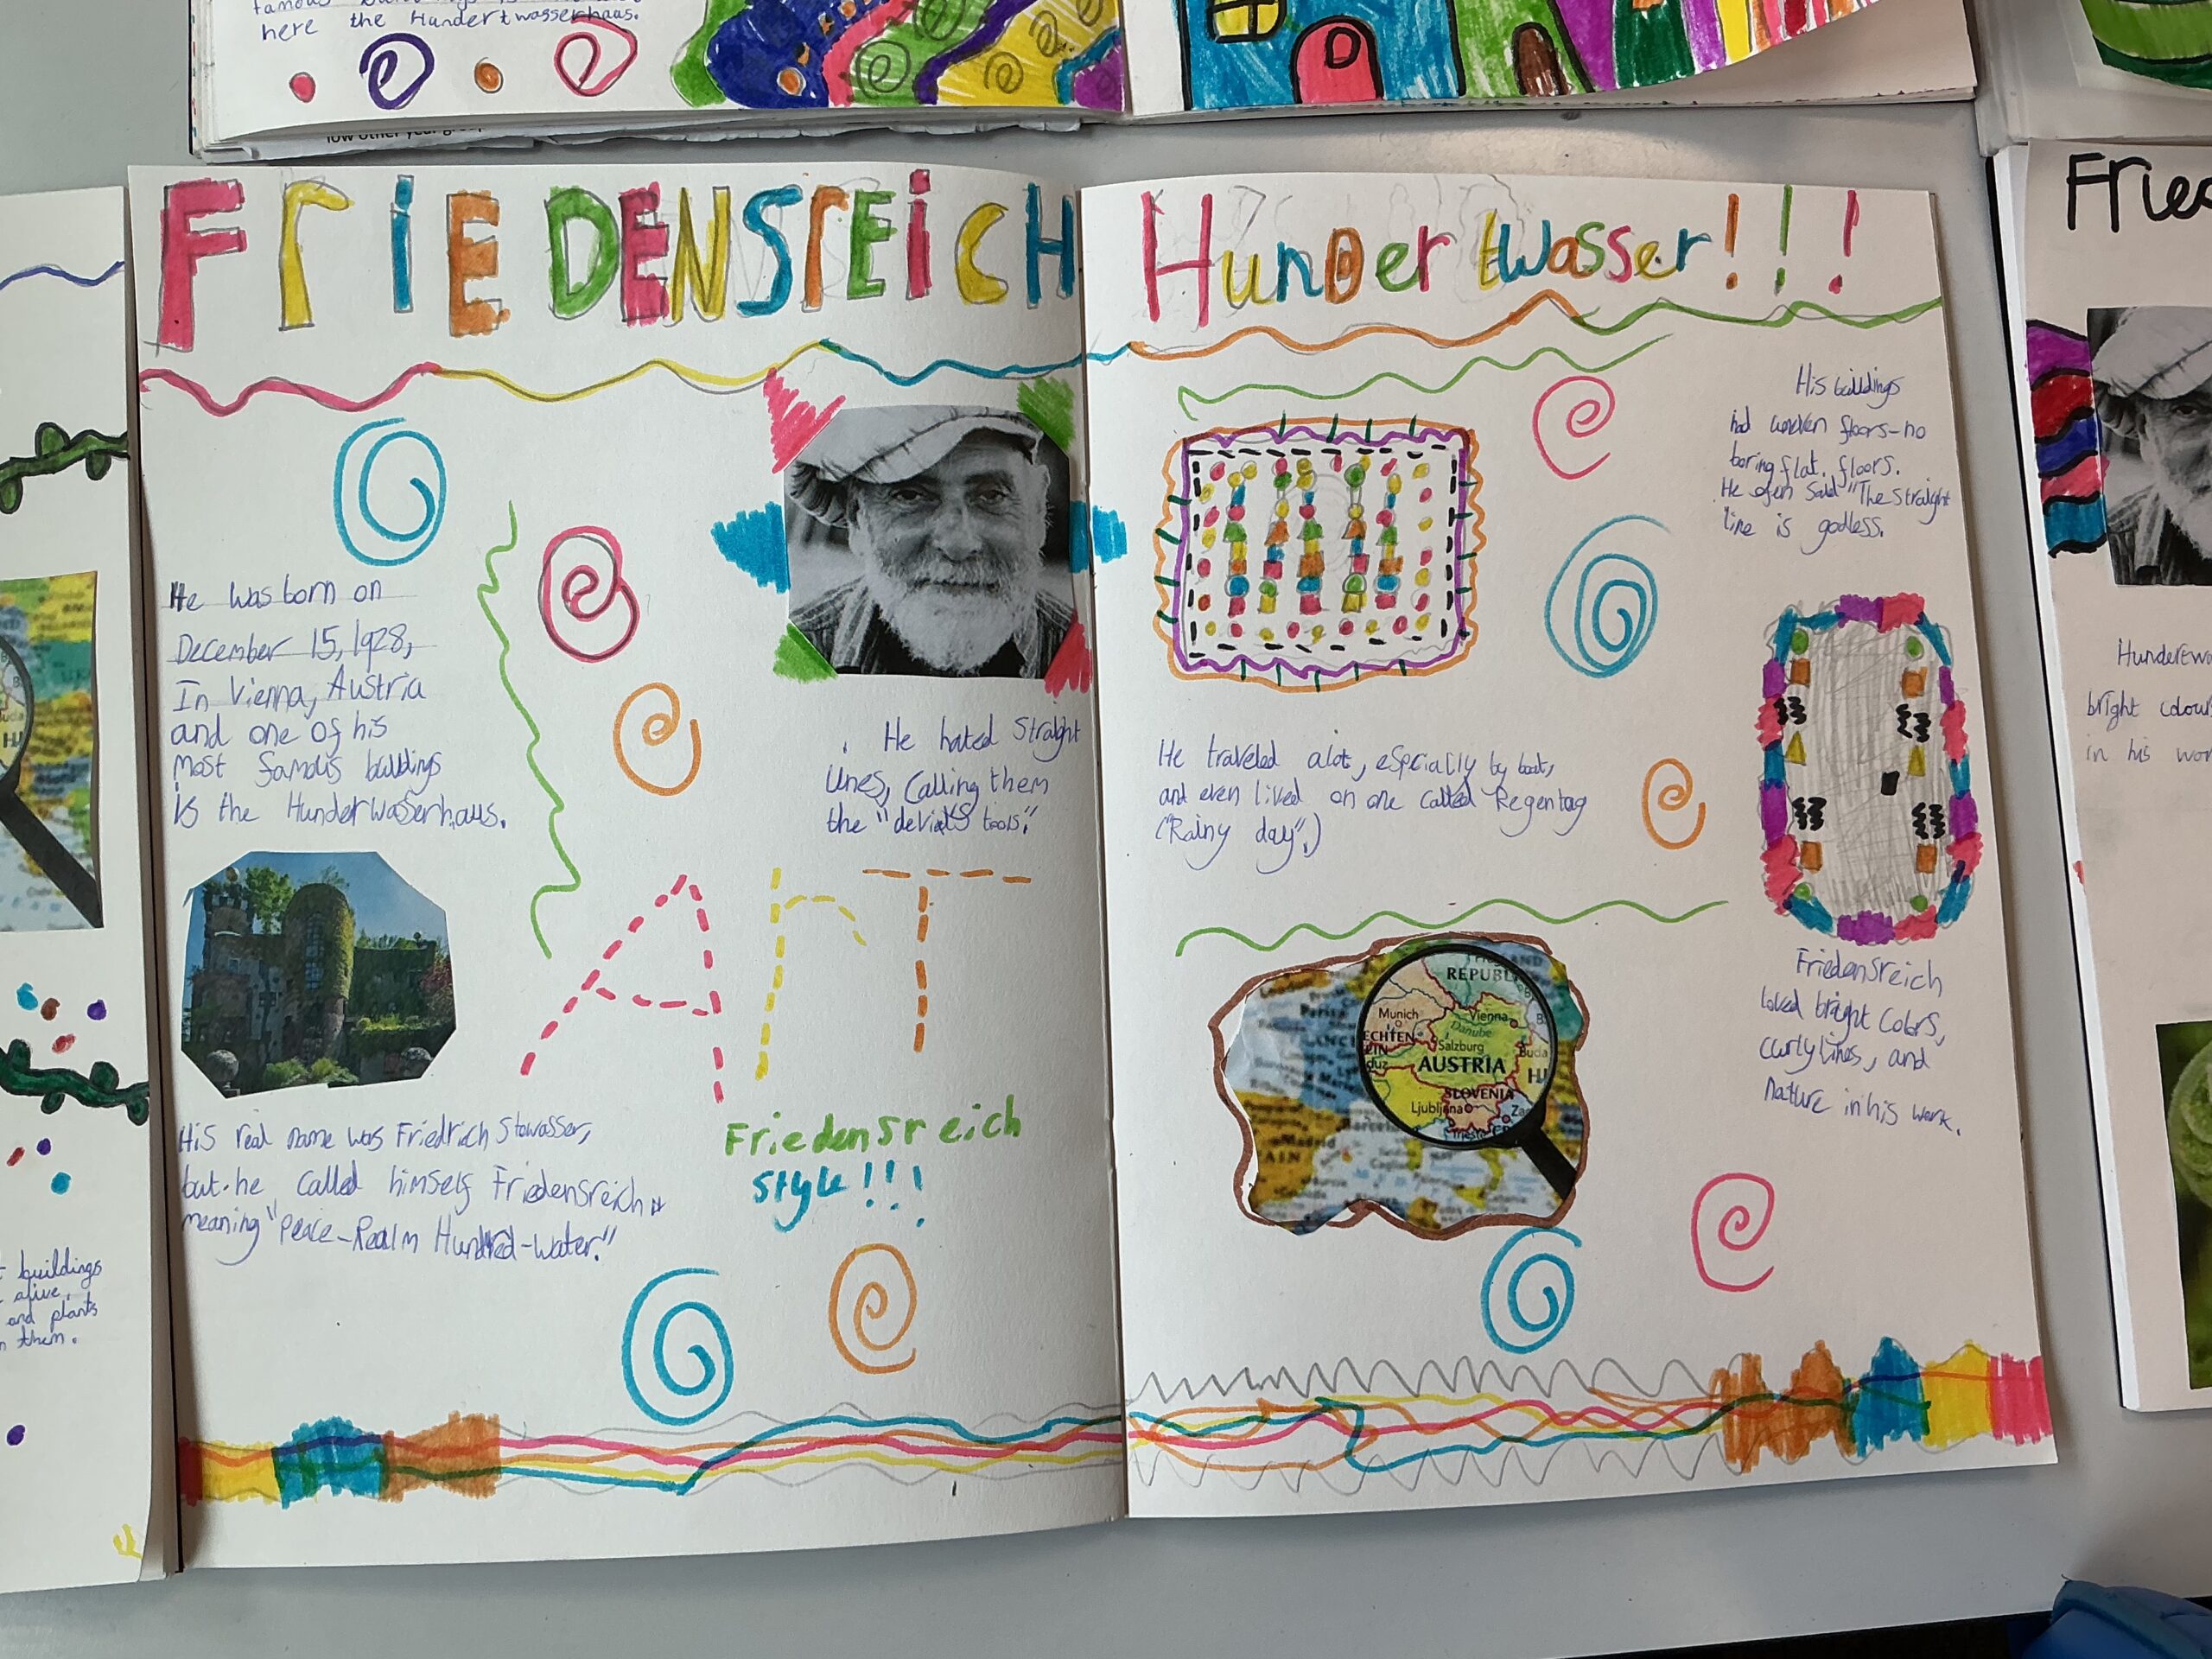 here the Hundertwasserhaus.
low other year group
FriEDENSrEiCH
HunDertwasser!!!
Frie
He was born on
December 15, 1928,
In Vienna, Austria
and one of his
most famous buildings
is the Hunderwasserhaus.
. He hated Straight
lines, Calling them
the "devial's tools".
ArT
Friedensreich
Style!!!
His real name was Friedrich Stowasser,
but he called himself Friedensreich
meaning "Peace-Realm Hundred-Water."
His buildings
had uneven floors-no
boring flat floors.
He ofen Said "The Straight
line is godless.
He traveled alot, especially by boat,
and even lived on one called Regentag
("Rainy day".)
REPUBL
Munich
Vienna
Danube
ECHTEN
Salzburg
LIN
duz
AUSTRIA
Buda
HU
SLOVENIA
Ljubljana
Za
AIN
Friedensreich
loved bright Colors,
curly lines, and
Nature in his work.
buildings
alive,
and plants
them.
Hundertwa
bright colour
in his wor